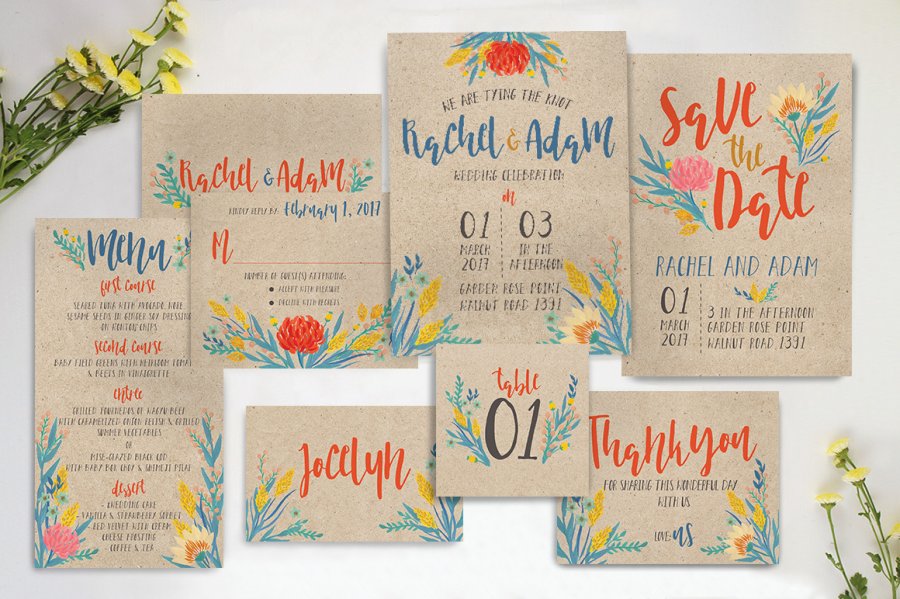 Rachel & Adam
KINDLY REPLY BY: February 1, 2017
M
NUMBER OF GUEST(S) ATTENDING:
ACCEPT WITH PLEASURE
DECLINE WITH REGRETS
WE ARE TYING THE KNOT
Rachel & Adam
WEDDING CELEBRATION
on
01
MARCH
2017
03
IN THE
AFTERNOON
GARDEN ROSE POINT
WALNUT ROAD, 1391
Save
the
Date
RACHEL AND ADAM
01
MARCH
2017
3 IN THE AFTERNOON
GARDEN ROSE POINT
WALNUT ROAD, 1391
Menu
first course
SEARED TUNA WITH AVOCADO, NORI
SESAME SEEDS IN GINGER SOY DRESSING
ON WONTON CHIPS
second course
BABY FIELD GREENS WITH HEIRLOOM TOMAT
& BEETS IN VINAIGRETTE
entree
GRILLED TOURNEDOS OF WAGYU BEEF
WITH CARAMELIZED ONION RELISH & GRILLED
SUMMER VEGETABLES
OR
MISO-GLAZED BLACK COD
WITH BABY BOK CHOY & SHIMEJI PILAF
dessert
- WEDDING CAKE
- VANILLA & STRAWBERRY SORBET
- RED VELVET WITH CREAM
CHEESE FROSTING
- COFFEE & TEA
Jocelyn
table
01
Thank you
FOR SHARING THIS WONDERFUL DAY
WITH US
LOVE: us